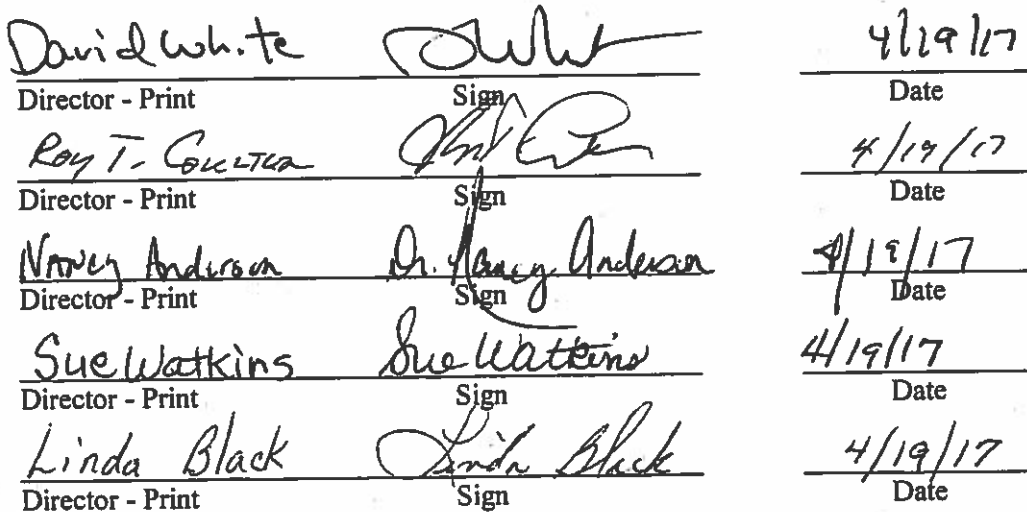 David White DWht 4/19/17
Director - Print Sign Date
Roy T. 4/19/17
Director - Print Sign Date
Nancy Anderson Dr. Nancy Anderson 4/19/17
Director - Print Sign Date
Sue Watkins Sue Watkins 4/19/17
Director - Print Sign Date
Linda Black Linda Black 4/19/17
Director - Print Sign Date